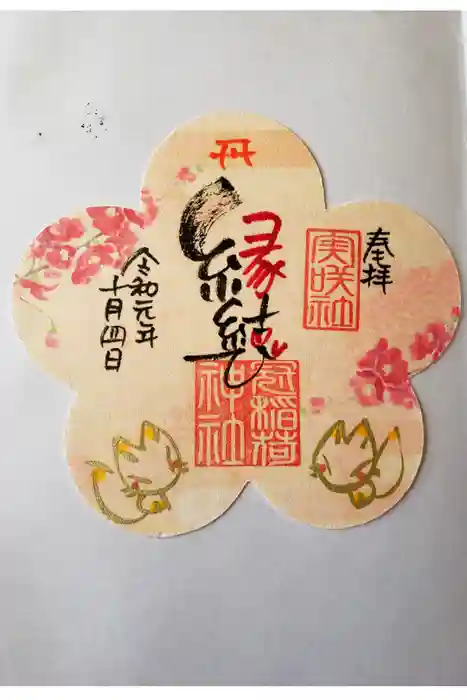 奉拝
実咲社
縁結び
冠稲荷
神社
令和元年
十月四日